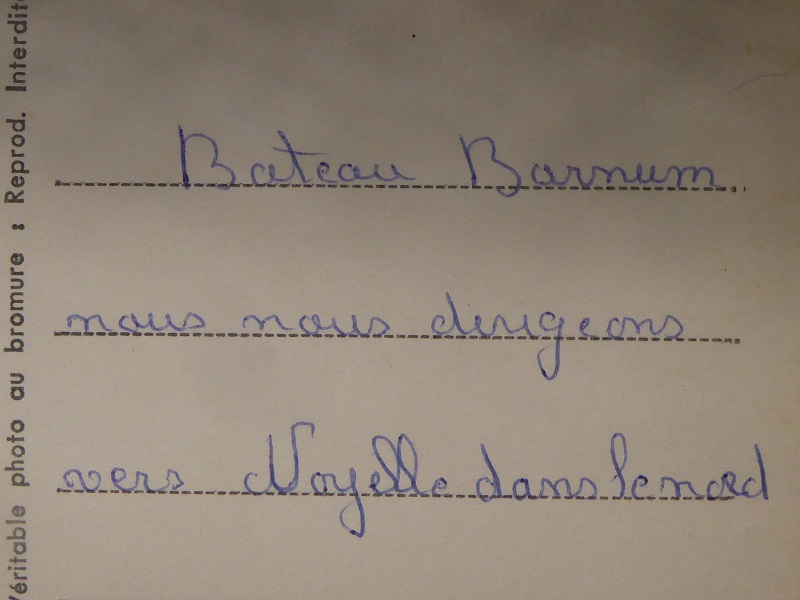 Véritable photo au bromure : Reprod. Interdite
Bateau Barnum
nous nous dirigeons
vers Noyelle dans le nord